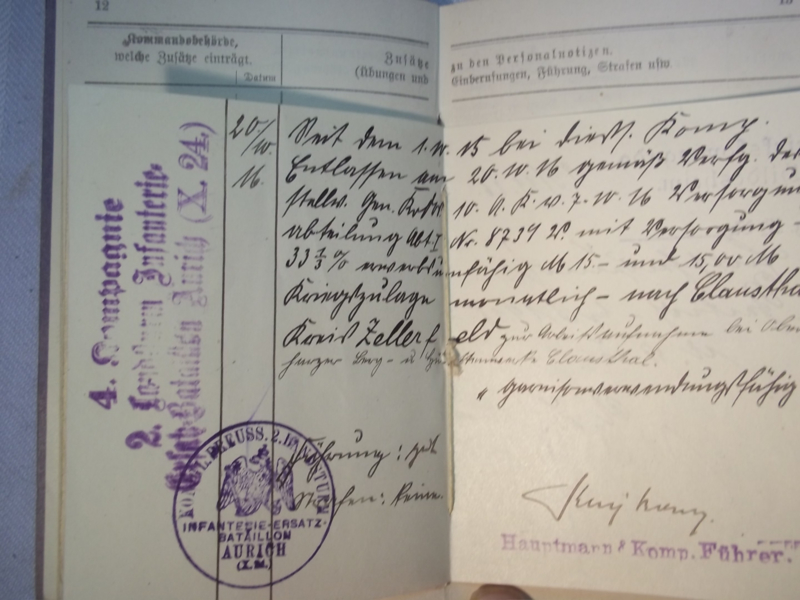 12
Kommandobehörde,
welche Zusätze einträgt.
Datum
Zusätze
(Übungen und
zu den Personalnotizen.
Einberufungen, Führung, Strafen usw.
4. Kompagnie
2. Landsturm Infanterie-
Ersatz-Bataillon Aurich (X. 24.)
20/10. 16.
Seit dem 1. 15 bei dies. Komp.
Entlassen am 20.10.16 gemäß Verfg. der
stellv. Gen. Kdos 10. A.K. v. 7.10.16 Versorgun
abteilung Abt I Nr. 8739 V. mit Versorgung -
33 1/3 % erwerbsunfähig M 15.- und 15,00 M
Kriegszulage monatlich - nach Clausthal
Kreis Zellerfeld zur Arbeitsaufnahme bei Ober
harzer Berg- u Hüttenwerke Clausthal.
" garnisonverwendungsfähig
Führung: gut
Strafen: keine.
KÖNIGL. PREUSS. 2. LANDSTURM
INFANTERIE-ERSATZ-
BATAILLON
AURICH
Hauptmann & Komp. Führer.